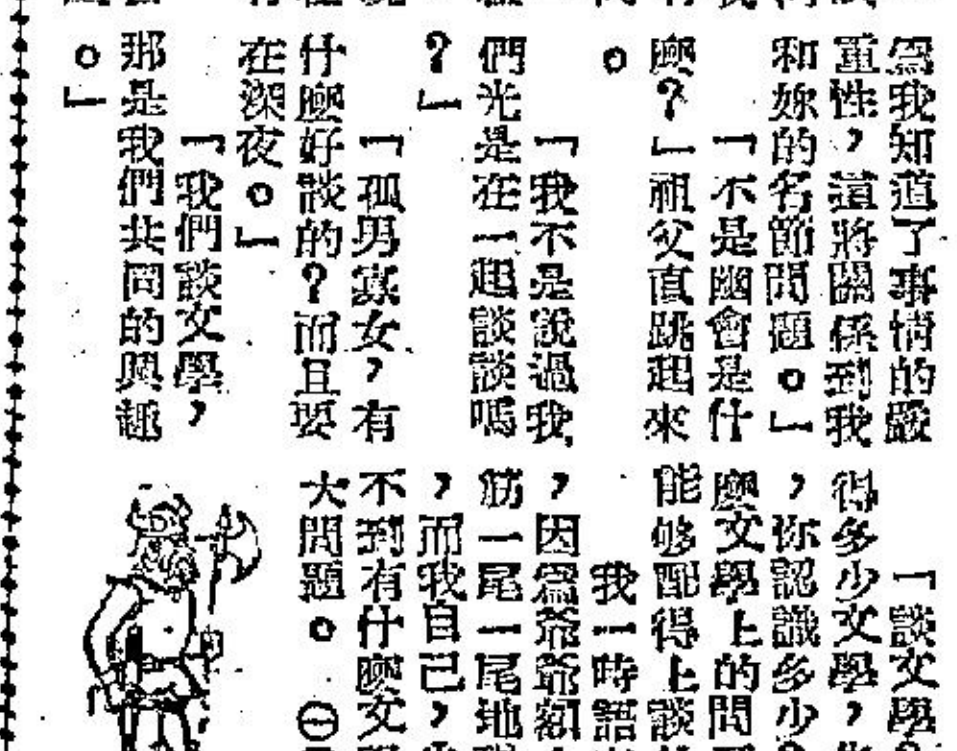 爲我知道了事情的嚴
重性，這將關係到我
和妳的名節問題。」
「不是幽會是什
麼？」祖父直跳起來
。
「我不是說過我
們光是在一起談談嗎
？」
「孤男寡女，有
什麼好談的？而且要
在深夜。」
「我們談文學，
那是我們共同的興趣
。」
「談文學
得多少文學，
，你認識多少
麼文學上的問
能够配得上談
我一時語
，因爲爺爺額
筋一尾一尾地
，而我自己，
不到有什麼文
大問題。㊀